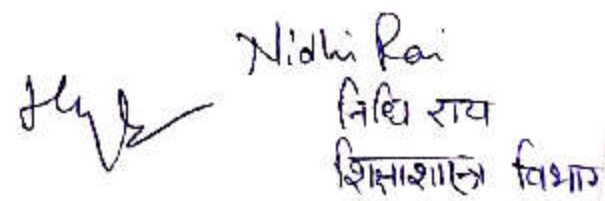 Nidhi Rai
निधि राय
शिक्षाशास्त्र विभाग